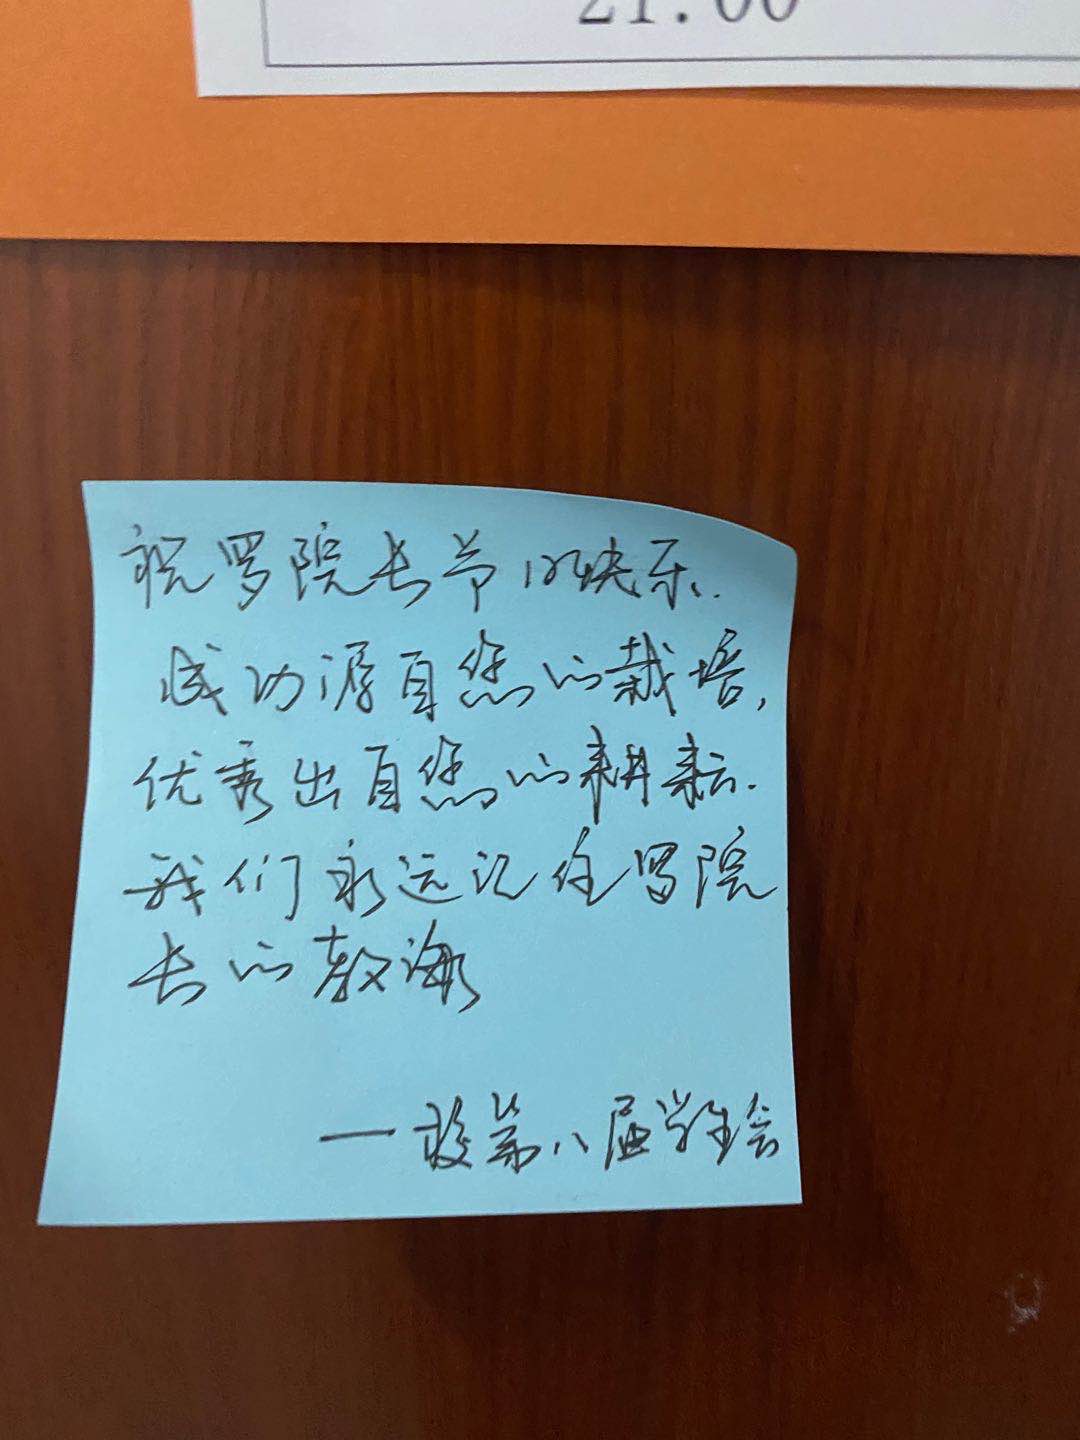 21:00
祝罗院长节日快乐.
成功源自您的栽培,
优秀出自您的耕耘.
我们永远记住罗院
长的教诲
—校第八届学生会